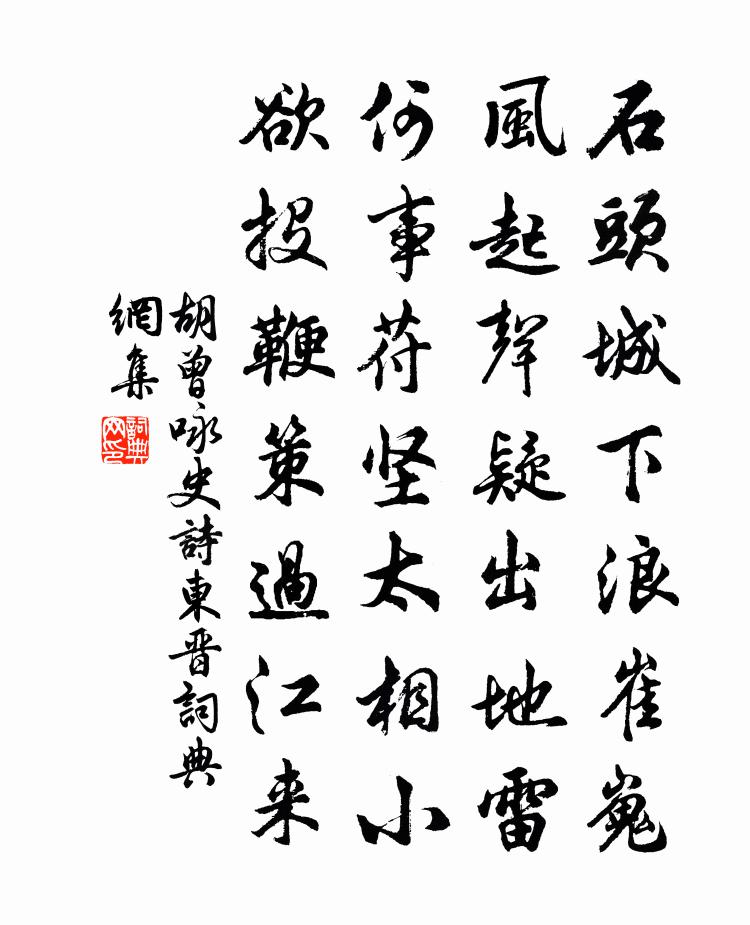 石頭城下浪崔嵬
風起聲疑出地雷
何事苻坚太相小
欲投鞭策過江来
胡曾咏史詩東晋詞典
網集
詞典
网印